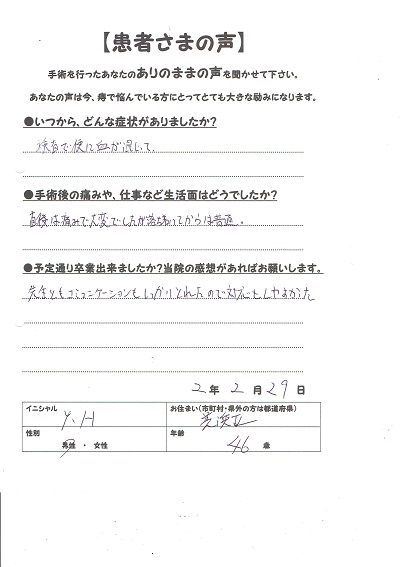 【患者さまの声】
手術を行ったあなたのありのままの声を聞かせて下さい。
あなたの声は今、痔で悩んでいる方にとってとても大きな励みになります。
●いつから、どんな症状がありましたか?
検査で便に血が混じって、
●手術後の痛みや、仕事など生活面はどうでしたか?
直後は痛みで大変でしたが落ち着いてからは普通。
●予定通り卒業出来ましたか?当院の感想があればお願いします。
先生ともコミュニケーションもしっかりとれたので対応もしやすかった
2年2月29日
イニシャル Y.H
お住まい(市町村・県外の方は都道府県)
性別 男性・女性
年齢 46歳